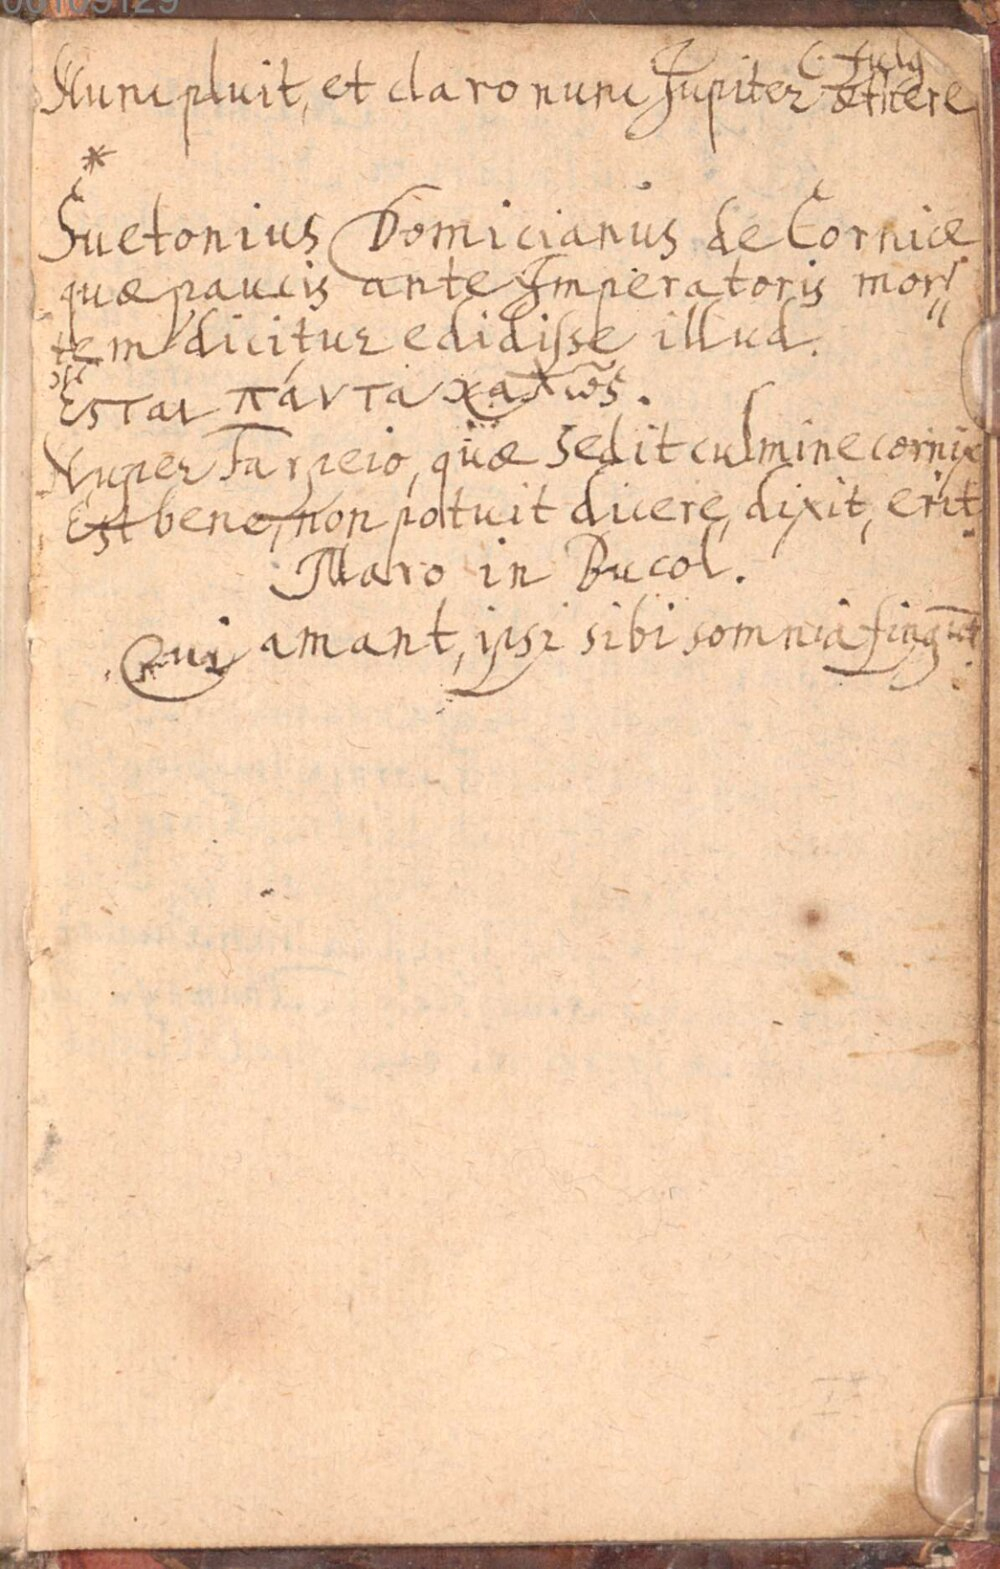 Nunc pluit, et claro nunc Jupiter æthere
*
Suetonius Domicianus de Cornice
quæ paucis ante Imperatoris mor//
tem dicitur edidisse illud.
Εσται πάντα καλῶς.
Nuper Tarpeio, quæ sedit culmine cornix
Est bene, non potuit dicere, dixit, erit.
Maro in Bucol.
Qui amant, ipsi sibi somnia fingūt